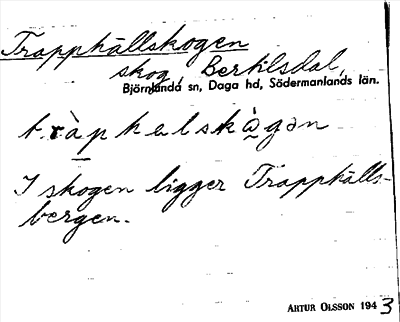 Trapphällskogen
skog, Bertilsdal,
Björnlunda sn, Daga hd, Södermanlands län.
tràphɛlskògən
I skogen ligger Trapphälls-
bergen.
ARTUR OLSSON 1943